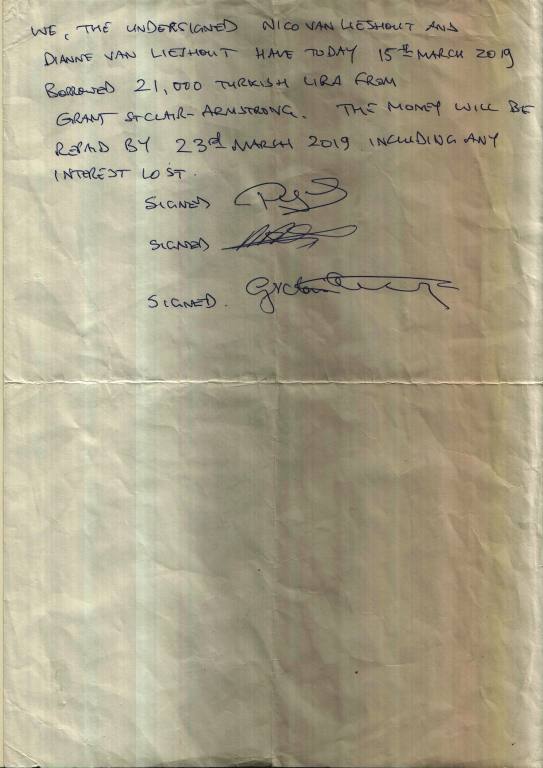 WE, THE UNDERSIGNED NICO VAN LIESHOUT AND
DIANNE VAN LIESHOUT HAVE TODAY 15th MARCH 2019
BORROWED 21,000 TURKISH LIRA FROM
GRANT ST CLAIR-ARMSTRONG. THE MONEY WILL BE
REPAID BY 23rd MARCH 2019 INCLUDING ANY
INTEREST LOST.
SIGNED
SIGNED
SIGNED.